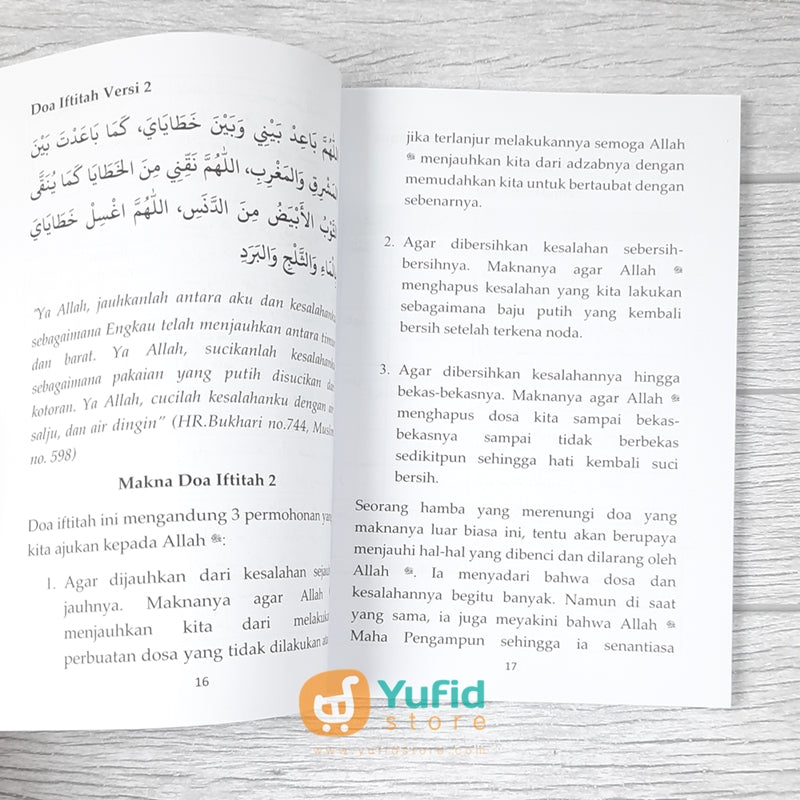 Doa Iftitah Versi 2
اللَّهُمَّ بَاعِدْ بَيْنِي وَبَيْنَ خَطَايَايَ، كَمَا بَاعَدْتَ بَيْنَ
الْمَشْرِقِ وَالْمَغْرِبِ، اللَّهُمَّ نَقِّنِي مِنَ الْخَطَايَا كَمَا يُنَقَّى
الثَّوْبُ الأَبْيَضُ مِنَ الدَّنَسِ، اللَّهُمَّ اغْسِلْ خَطَايَايَ
بِالْمَاءِ وَالثَّلْجِ وَالْبَرَدِ
"Ya Allah, jauhkanlah antara aku dan kesalahanku
sebagaimana Engkau telah menjauhkan antara timur
dan barat. Ya Allah, sucikanlah kesalahanku
sebagaimana pakaian yang putih disucikan dari
kotoran. Ya Allah, cucilah kesalahanku dengan air
salju, dan air dingin" (HR.Bukhari no.744, Muslim
no. 598)
Makna Doa Iftitah 2
Doa iftitah ini mengandung 3 permohonan yang
kita ajukan kepada Allah ﷻ:
1. Agar dijauhkan dari kesalahan sejauh
jauhnya. Maknanya agar Allah
menjauhkan kita dari melakukan
perbuatan dosa yang tidak dilakukan
16
jika terlanjur melakukannya semoga Allah
ﷻ menjauhkan kita dari adzabnya dengan
memudahkan kita untuk bertaubat dengan
sebenarnya.
2. Agar dibersihkan kesalahan sebersih-
bersihnya. Maknanya agar Allah ﷻ
menghapus kesalahan yang kita lakukan
sebagaimana baju putih yang kembali
bersih setelah terkena noda.
3. Agar dibersihkan kesalahannya hingga
bekas-bekasnya. Maknanya agar Allah ﷻ
menghapus dosa kita sampai bekas-
bekasnya sampai tidak berbekas
sedikitpun sehingga hati kembali suci
bersih.
Seorang hamba yang merenungi doa yang
maknanya luar biasa ini, tentu akan berupaya
menjauhi hal-hal yang dibenci dan dilarang oleh
Allah ﷻ. Ia menyadari bahwa dosa dan
kesalahannya begitu banyak. Namun di saat
yang sama, ia juga meyakini bahwa Allah ﷻ
Maha Pengampun sehingga ia senantiasa
17
Yufid
store
www.yufidstore.com